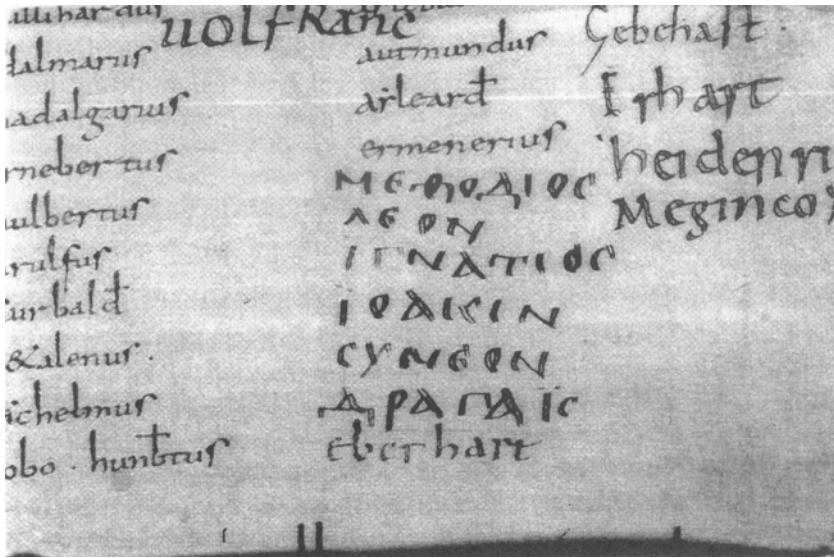 uolfkanc
dalmarus
adalgarius
rnebertus
ulbertus
rulfus
urbald̄
&alenus.
chelmus
obo . hunb̄tus
autmundus
arleard̄
ermenerius
ΜΕΘΟΔΙΟС
ΛΕΟΝ
ΙΓΝΑΤΙΟС
ΙΟΑΚΙΝ
СΥΜΕΟΝ
ΔΡΑΓΑΪС
eberhart
Gebehart.
Erhart
heidenri
Meginco